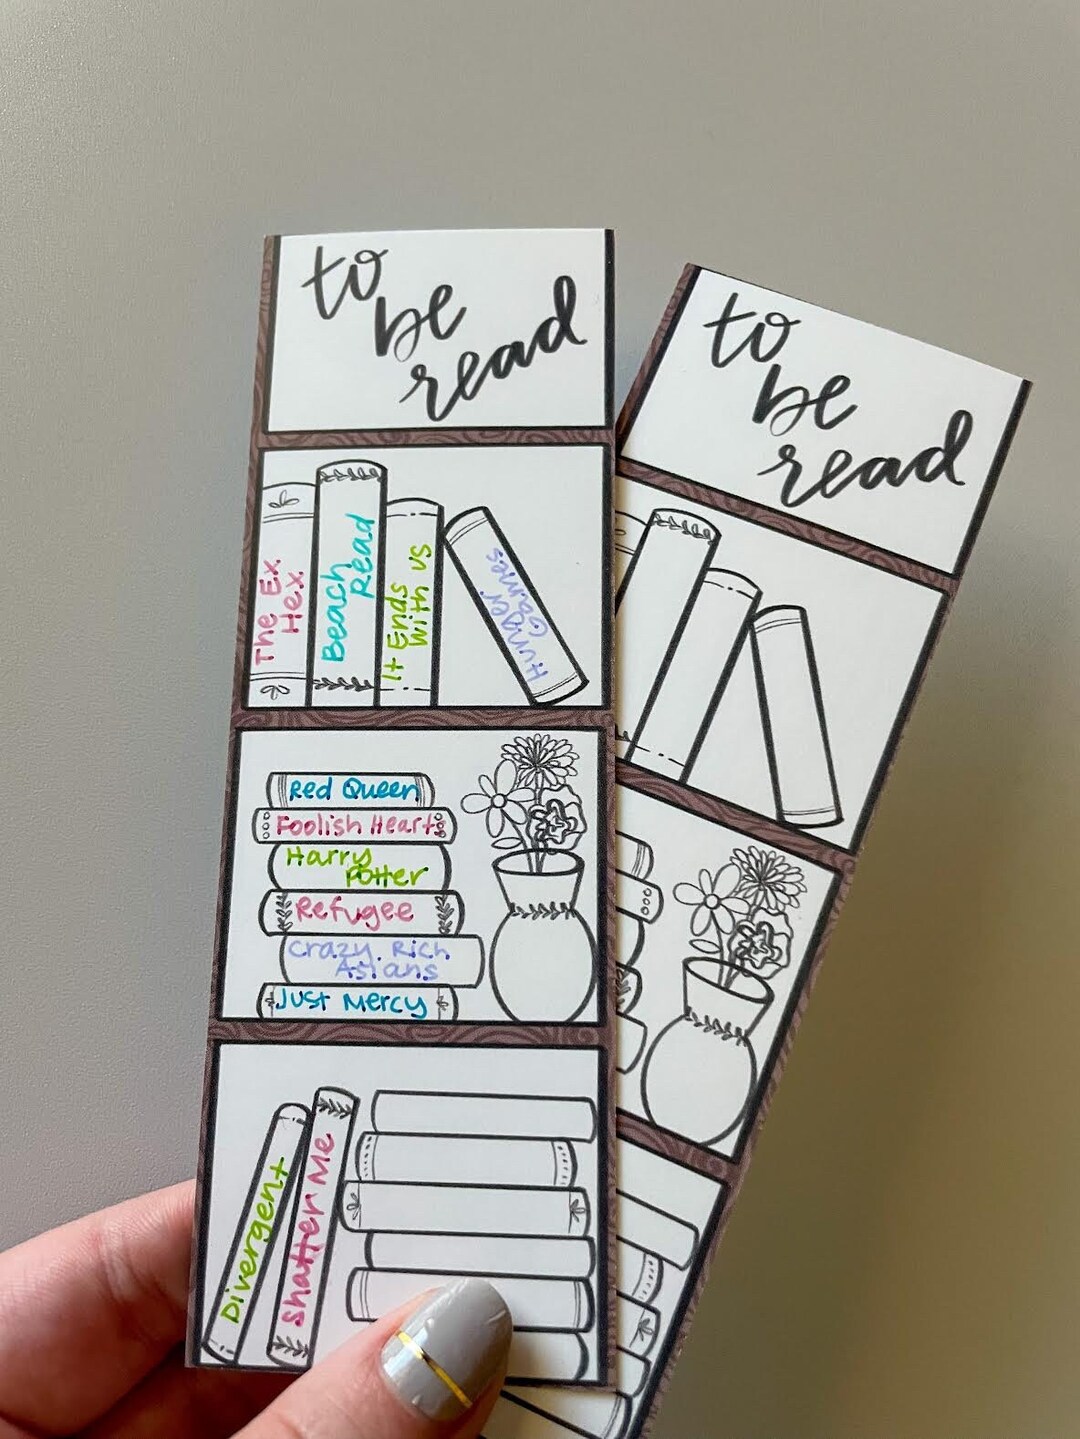 to
be
read
The Ex
Hex
Beach
Read
It Ends
With US
Hunger
Games
Red Queen
Foolish Hearts
Harry
Potter
Refugee
Crazy Rich
Asians
Just Mercy
Divergent
Shatter Me
to
be
read